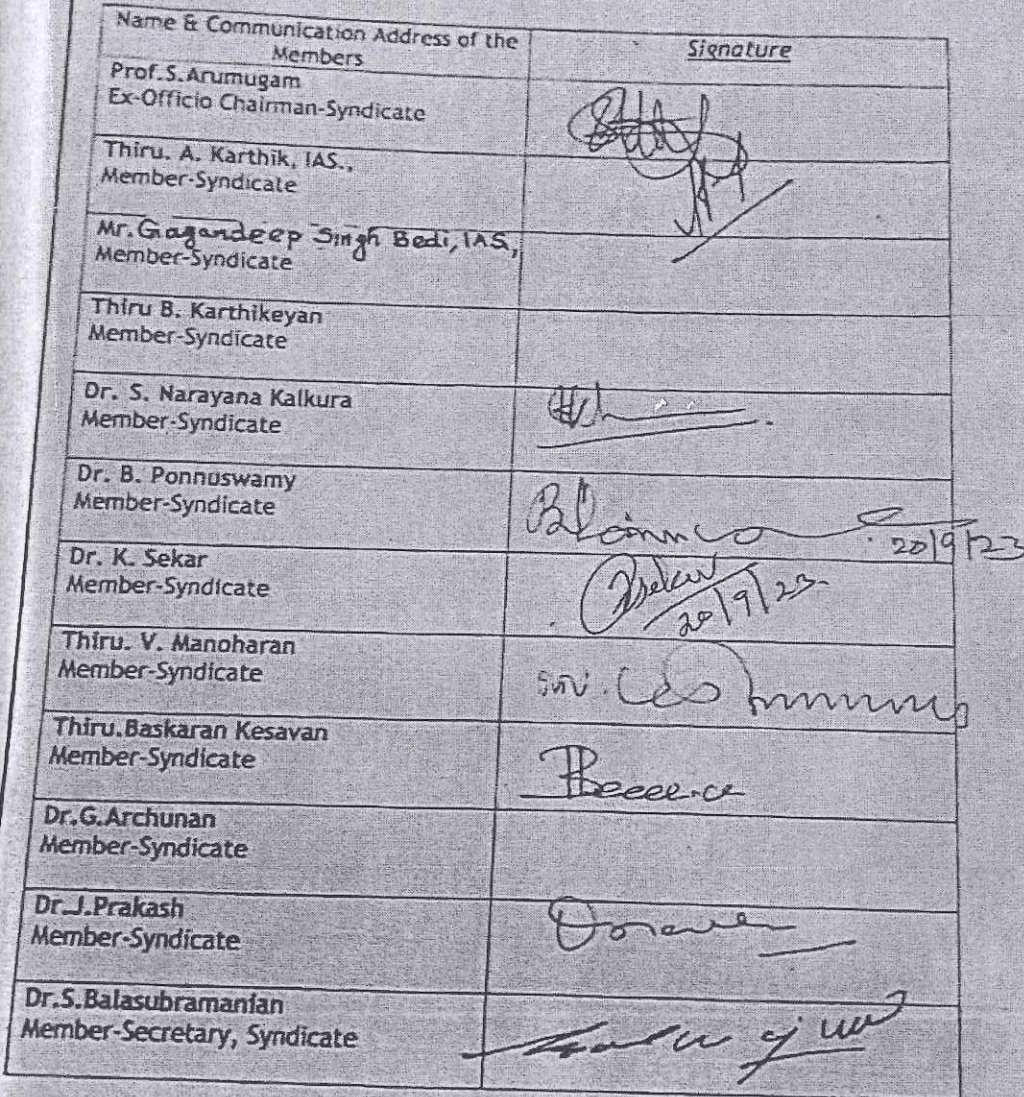 Name & Communication Address of the
Members
Signature
Prof.S.Arumugam
Ex-Officio Chairman-Syndicate
Thiru. A. Karthik, IAS.,
Member-Syndicate
Mr. Gagandeep Singh Bedi, IAS,
Member-Syndicate
Thiru B. Karthikeyan
Member-Syndicate
Dr. S. Narayana Kalkura
Member-Syndicate
Dr. B. Ponnuswamy
Member-Syndicate
20/9/23
Dr. K. Sekar
Member-Syndicate
20/9/23
Thiru. V. Manoharan
Member-Syndicate
Thiru.Baskaran Kesavan
Member-Syndicate
Dr.G.Archunan
Member-Syndicate
Dr.J.Prakash
Member-Syndicate
Dr.S.Balasubramanian
Member-Secretary, Syndicate